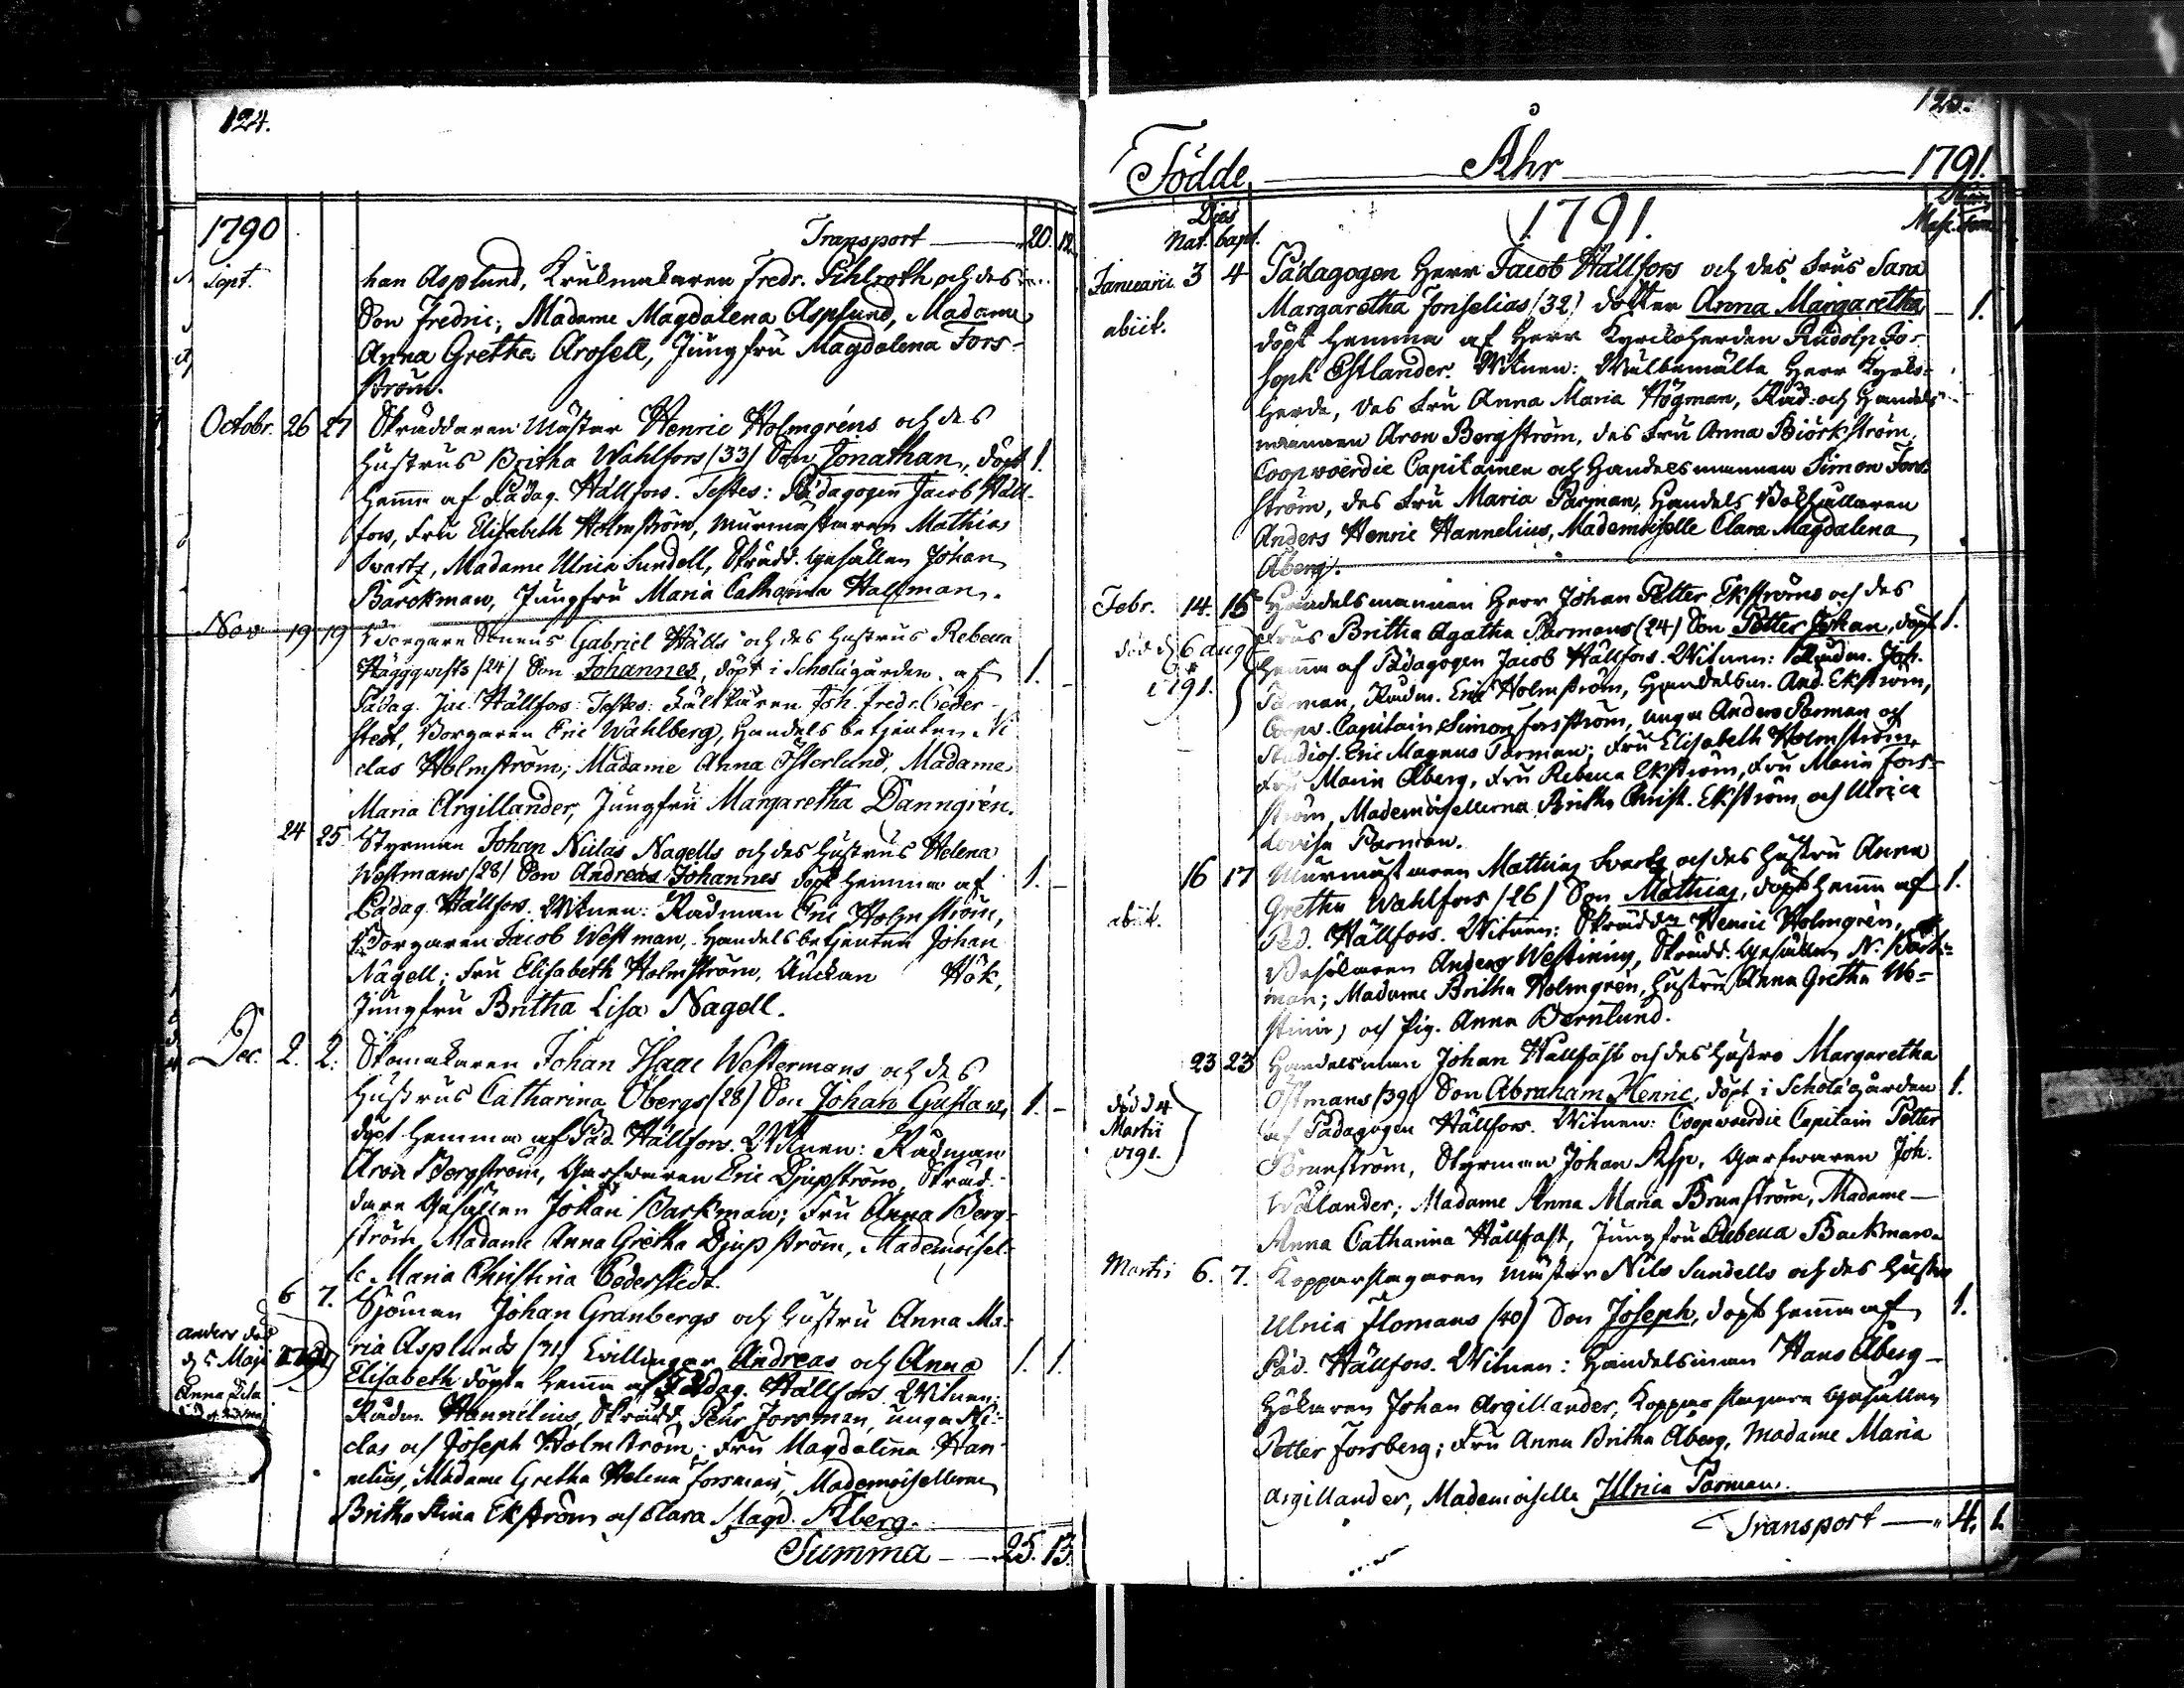 124.
1790
Transport — 20. 12.
Sept. han Asplund, Krukmakaren Fredr. Pihlroth och des
Son Fredric, Madame Magdalena Asplund, Madame
Anna Gretha Arosell, Jungfru Magdalena Fors-
ström.
Octobr. 26 27 Skräddaren Mäster Henric Holmgréns och des
Hustrus Britha Wahlfors (33) Son Jonathan, döpt 1.
hemma af Pädag. Hällfors. Testes: Pädagogen Jacob Häll-
fors, Fru Elisabeth Holmström, Murmästaren Mathias
Swartz, Madame Ulrica Sundell, Skrädd. Gesällen Johan
Barckman, Jungfru Maria Catharina Hallman.
Nov. 19 19 Borgare Sonens Gabriel Hälls och des Hustrus Rebecca
Häggqwists (24) Son Johannes, döpt i Scholægården af 1. -
Pädag. Jac. Hällfors. Testes: Fältskären Joh. Fredr. Ceder-
stedt, Borgaren Eric Wahlberg, Handels betjenten Ni
clas Holmström; Madame Anna Österlund, Madame
Maria Argillander, Jungfru Margaretha Danngrén.
24 25 Styrman Johan Niclas Nagells och des Hustrus Helena
Westmans (28) Son Andreas Johannes döpt hemma af 1. -
Pädag. Hällfors. Witnen: Rådman Eric Holmström,
Borgaren Jacob Westman, Handelsbetjenten Johan
Nagell; Fru Elisabeth Holmström, Änckan Hök,
Jungfru Britha Lisa Nagell.
Dec. 2. 2. Skomakaren Johan Isaac Westermans och des
Hustrus Catharina Öbergs (28) Son Johan Gustaw, 1. -
döpt hemma af Päd. Hällfors. Witnen: Rådman
Aron Bergström, Garfwaren Eric Djupström, Skräd-
dare Gesällen Johan Barkman; Fru Anna Berg-
ström, Madame Anna Gretha Djupström, Mademoisel-
le Maria Christina Cederstedt.
6 7. Sjöman Johan Granbergs och Hustru Anna Ma-
anders död
d. 5 Maji 1791
ria Asplunds (31) Twillingar Andreas och Anna 1. 1.
Anna Lisa
Elisabeth döpta hemma af Pädag. Hällfors. Witnen:
Rådm. Hannelius, Skrädd. Pehr Forsman, unga Ni-
clas och Joseph Holmström; Fru Magdalena Han-
nelius, Madame Gretha Helena Forsman, Mademoisellerne
Britha Stina Ekström och Clara Magd. Åberg.
Summa — 25. 13.
125.
Födde Åhr 1791.
Dies
Nat. bapt.
1791.
Masc. Fem.
Januarii 3 4 Pädagogen Herr Jacob Hällfors och des Frus Sara
abiit.
Margaretha Forsselias (32) dotter Anna Margaretha — 1.
döpt hemma af Herr Kyrckoherden Rudolp Jo-
seph Estlander. Witnen: Wälbemälte Herr Kyrko-
herde, des Fru Anna Maria Högman, Råd- och Handels-
mannen Aron Bergström, des Fru Anna Biörkström,
Coopvoerdie Capitainen och Handelsmannen Simon Fors-
ström, des Fru Maria Parman, Handels Bokhållaren
Anders Henric Hannelius, Mademoiselle Clara Magdalena
Åberg.
Febr. 14. 15 Handelsmannen Herr Johan Petter Ekströms och des
död d. 6 aug.
1791.
Frus Britha Agatha Parmans (24) Son Petter Johan, döpt 1.
hemma af Pädagogen Jacob Hällfors. Witnen: Rådm. Joh.
Parman, Rådm. Eric Holmström, Handelsm. And. Ekström,
Coopv. Capitain Simon Forsström, unga Anders Parman och
Studios. Eric Magnus Parman; Fru Elisabeth Holmström,
Fru Maria Åberg, Fru Rebecca Ekström, Fru Maria Fors-
ström, Mademoisellerna Britha Christ. Ekström och Ulrica
Lovisa Parman.
16 17 Murmästaren Mathias Swartz och des Hustru Anna
abiit.
Gretha Wahlfors (26) Son Mathias, döpt hemma af 1.
Päd. Hällfors. Witnen: Skräddn Henric Holmgrén,
Anders Westinius, Skrädd. Gesällen
man; Madame Britha Holmgrén, Hustru Anna Gretha We-
stinius och Pig. Anna Bernlund.
23 23 Handelsman Johan Hällfast och des Hustro Margaretha
död d. 4
Martii
1791.
Östmans (39) Son Abraham Henric, döpt i Scholægården 1.
af Pädagogen Hällfors. Witnen: Coopvoerdie Capitain Petter
Brunström, Styrman Johan Asp, Garfwaren Joh.
Wälander; Madame Anna Maria Brunström, Madame
Anna Catharina Hällfast, Jungfru Rebecca Backman.
Martii 6. 7. Kopparslagaren Mäster Nils Sundells och des Hustru
Ulrica Flomans (40) Son Joseph, döpt hemma af 1.
Päd. Hällfors. Witnen: Handelsman Hans Åberg
Hökaren Johan Argillander, Kopparslagare Gesällen
Petter Forsberg; Fru Anna Britha Åberg, Madame Maria
Argillander, Mademoiselle Ulrica Parman.
Transport — 4. 1.